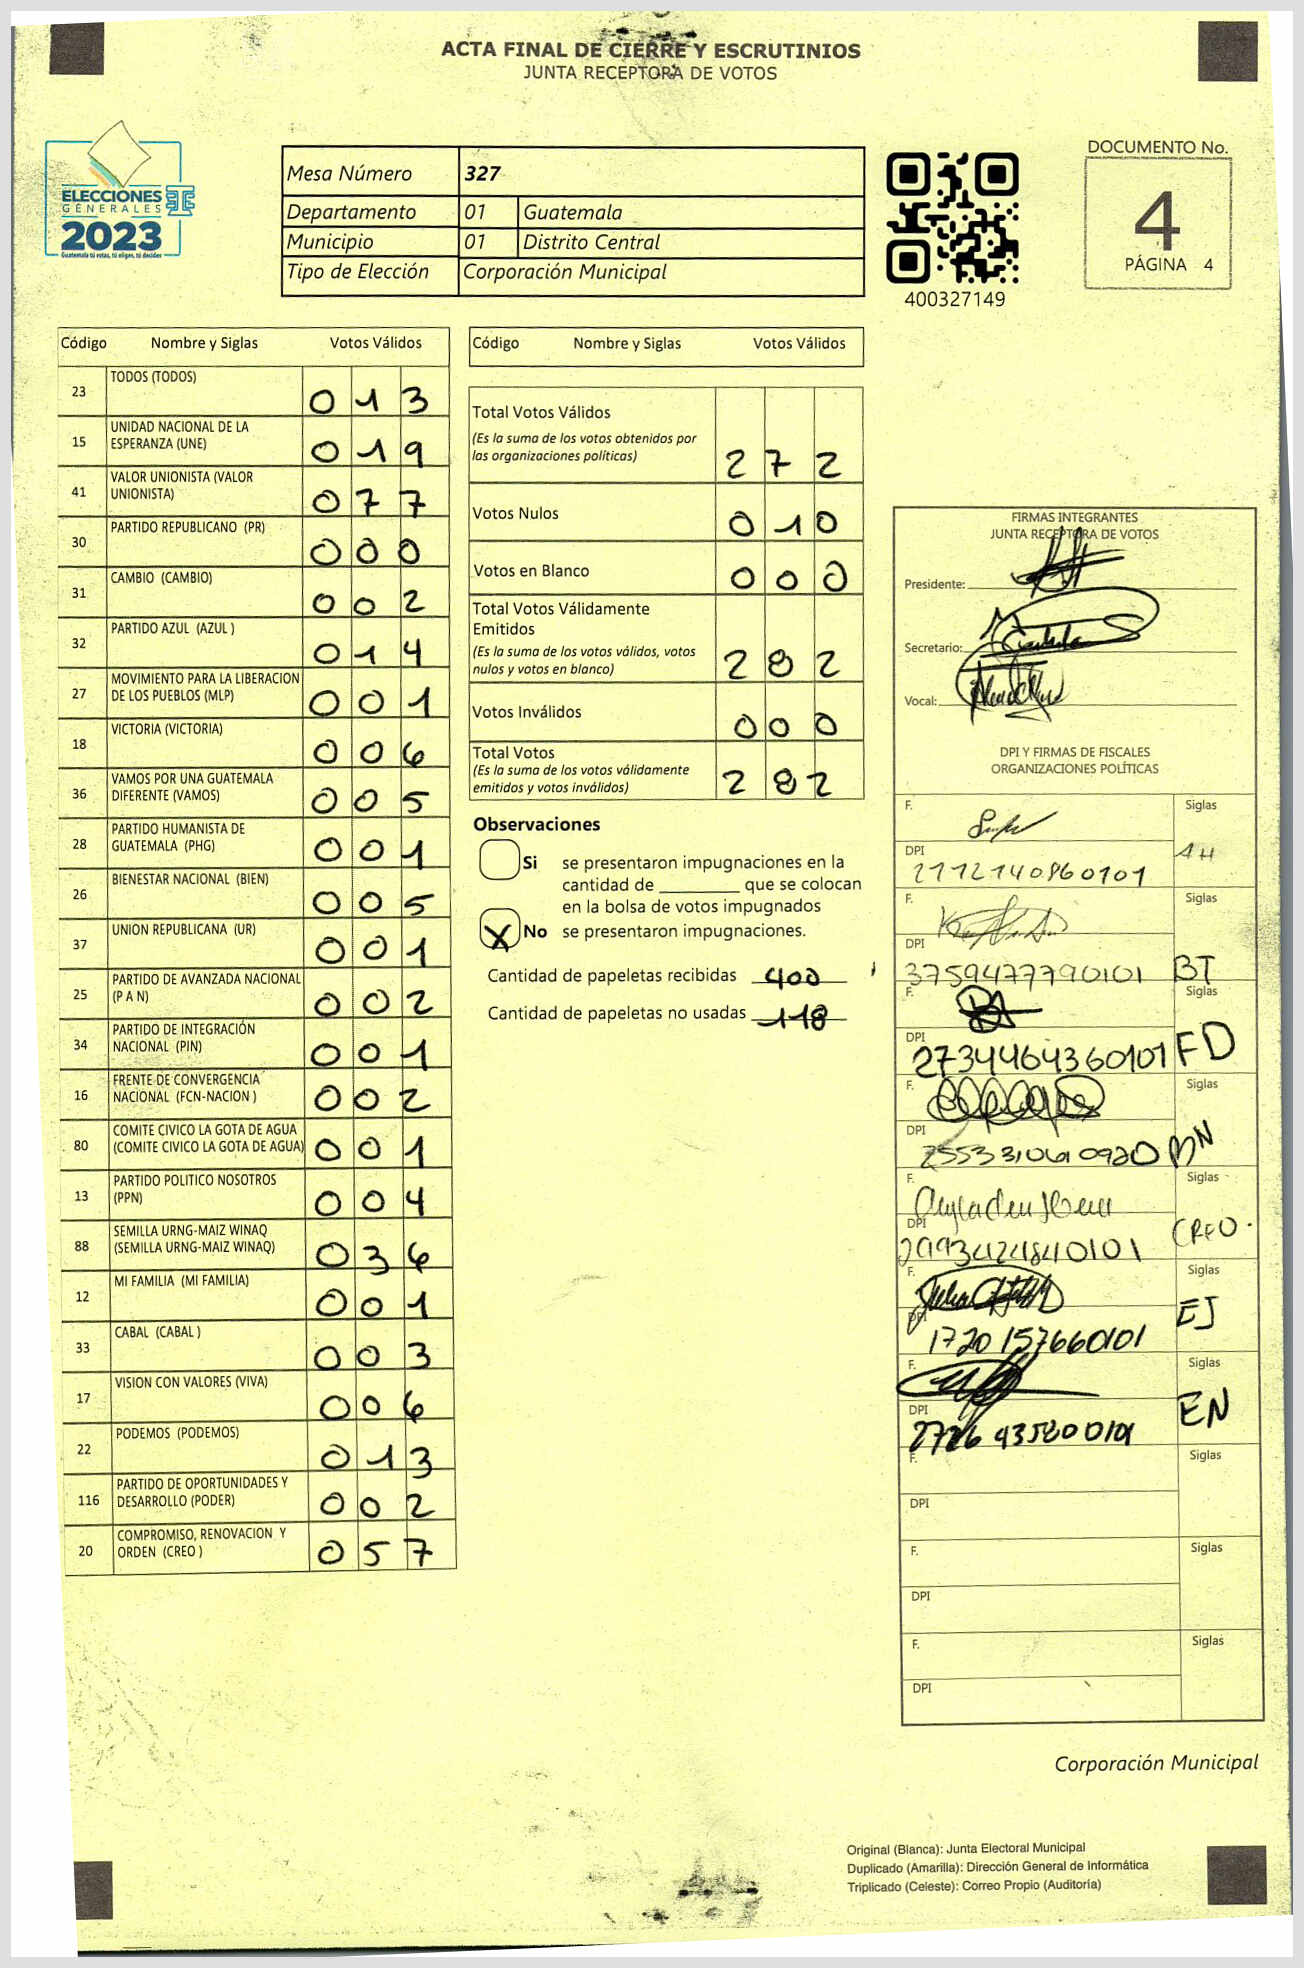 ACTA FINAL DE CIERRE Y ESCRUTINIOS
JUNTA RECEPTORA DE VOTOS
ELECCIONES
GENERALES
2023
Guatemala tú votas, tú eliges, tú decides
Mesa Número 327
Departamento 01 Guatemala
Municipio 01 Distrito Central
Tipo de Elección Corporación Municipal
400327149
DOCUMENTO No.
4
PÁGINA 4
Código Nombre y Siglas Votos Válidos
23 TODOS (TODOS) 0 1 3
15 UNIDAD NACIONAL DE LA
ESPERANZA (UNE) 0 1 9
41 VALOR UNIONISTA (VALOR
UNIONISTA) 0 7 7
30 PARTIDO REPUBLICANO (PR) 0 0 0
31 CAMBIO (CAMBIO) 0 0 2
32 PARTIDO AZUL (AZUL ) 0 1 4
27 MOVIMIENTO PARA LA LIBERACION
DE LOS PUEBLOS (MLP) 0 0 1
18 VICTORIA (VICTORIA) 0 0 6
36 VAMOS POR UNA GUATEMALA
DIFERENTE (VAMOS) 0 0 5
28 PARTIDO HUMANISTA DE
GUATEMALA (PHG) 0 0 1
26 BIENESTAR NACIONAL (BIEN) 0 0 5
37 UNION REPUBLICANA (UR) 0 0 1
25 PARTIDO DE AVANZADA NACIONAL
(P A N) 0 0 2
34 PARTIDO DE INTEGRACIÓN
NACIONAL (PIN) 0 0 1
16 FRENTE DE CONVERGENCIA
NACIONAL (FCN-NACION ) 0 0 2
80 COMITE CIVICO LA GOTA DE AGUA
(COMITE CIVICO LA GOTA DE AGUA) 0 0 1
13 PARTIDO POLITICO NOSOTROS
(PPN) 0 0 4
88 SEMILLA URNG-MAIZ WINAQ
(SEMILLA URNG-MAIZ WINAQ) 0 3 6
12 MI FAMILIA (MI FAMILIA) 0 0 1
33 CABAL (CABAL ) 0 0 3
17 VISION CON VALORES (VIVA) 0 0 6
22 PODEMOS (PODEMOS) 0 1 3
116 PARTIDO DE OPORTUNIDADES Y
DESARROLLO (PODER) 0 0 2
20 COMPROMISO, RENOVACION Y
ORDEN (CREO ) 0 5 7
Código Nombre y Siglas Votos Válidos
Total Votos Válidos
(Es la suma de los votos obtenidos por
las organizaciones políticas) 2 7 2
Votos Nulos 0 1 0
Votos en Blanco 0 0 0
Total Votos Válidamente
Emitidos
(Es la suma de los votos válidos, votos
nulos y votos en blanco) 2 8 2
Votos Inválidos 0 0 0
Total Votos
(Es la suma de los votos válidamente
emitidos y votos inválidos) 2 8 2
Observaciones
Si se presentaron impugnaciones en la
cantidad de ________ que se colocan
en la bolsa de votos impugnados
X No se presentaron impugnaciones.
Cantidad de papeletas recibidas 400
Cantidad de papeletas no usadas 118
FIRMAS INTEGRANTES
JUNTA RECEPTORA DE VOTOS
Presidente:
Secretario:
Vocal:
DPI Y FIRMAS DE FISCALES
ORGANIZACIONES POLÍTICAS
F. Siglas
DPI
2112140860101
F. Siglas
DPI
3759477790101 BT
F. Siglas
DPI
2734464360101 FD
F. Siglas
DPI
2553310610920 BN
F. Siglas
DPI CREO.
2993424840101
F. Siglas
DPI EJ
1720157660101
F. Siglas
DPI EN
2726435800101
F. Siglas
DPI
F. Siglas
DPI
F. Siglas
DPI
Corporación Municipal
Original (Blanca): Junta Electoral Municipal
Duplicado (Amarilla): Dirección General de Informática
Triplicado (Celeste): Correo Propio (Auditoría)